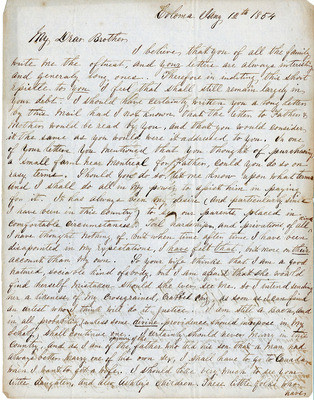 Coloma May 12th 1854
My Dear Brother
I believe that you of all the family
write me the oftenest, and your letters are always interesting
and generaly long ones. Therefore in inditing this short
epistle to you I feel that shall still remain largely in
your debt. I should have certainly written you a long letter
by this Mail had I not known that the letter to Father &
Mother would be read by you, and that you would consider
it the same as you would were it addressed to you. In one
of your letters you mentioned that you thought of purchasing
a small farm near Montreal for Father, could you do so on
easy terms. Should you do so let me know upon what terms
and I shall do all in my power to assist him in paying
for it. It has always been my desire (and particularly since
I have been in this Country) to see our parents placed in
Comfortable Circumstances. Toil hardships, and privations of all
kinds I have thought nothing of but when time after time I have been
disapointed in my expectations, I have felt that, but more on their
account than my own. So your wife thinks that I am a good
natured, sociable kind of body, but I am afraid that she would
find herself mistaken should she ever see me. I do intend sending
me a likeness of my Crossgrained, Crabbed as soon as I can find
an artist who I think will do it justice. I am still a
in all probability (unless some divine providence should interpose in my
I certainly should never marry in this
Country, and as I am of the father who told his son that a man had
always better marry one of his own sex, I shall have to go to Canada
when I want to get a wife. I should like very much to see your
little daughter, and also Ashley's Children. These little folks who
have